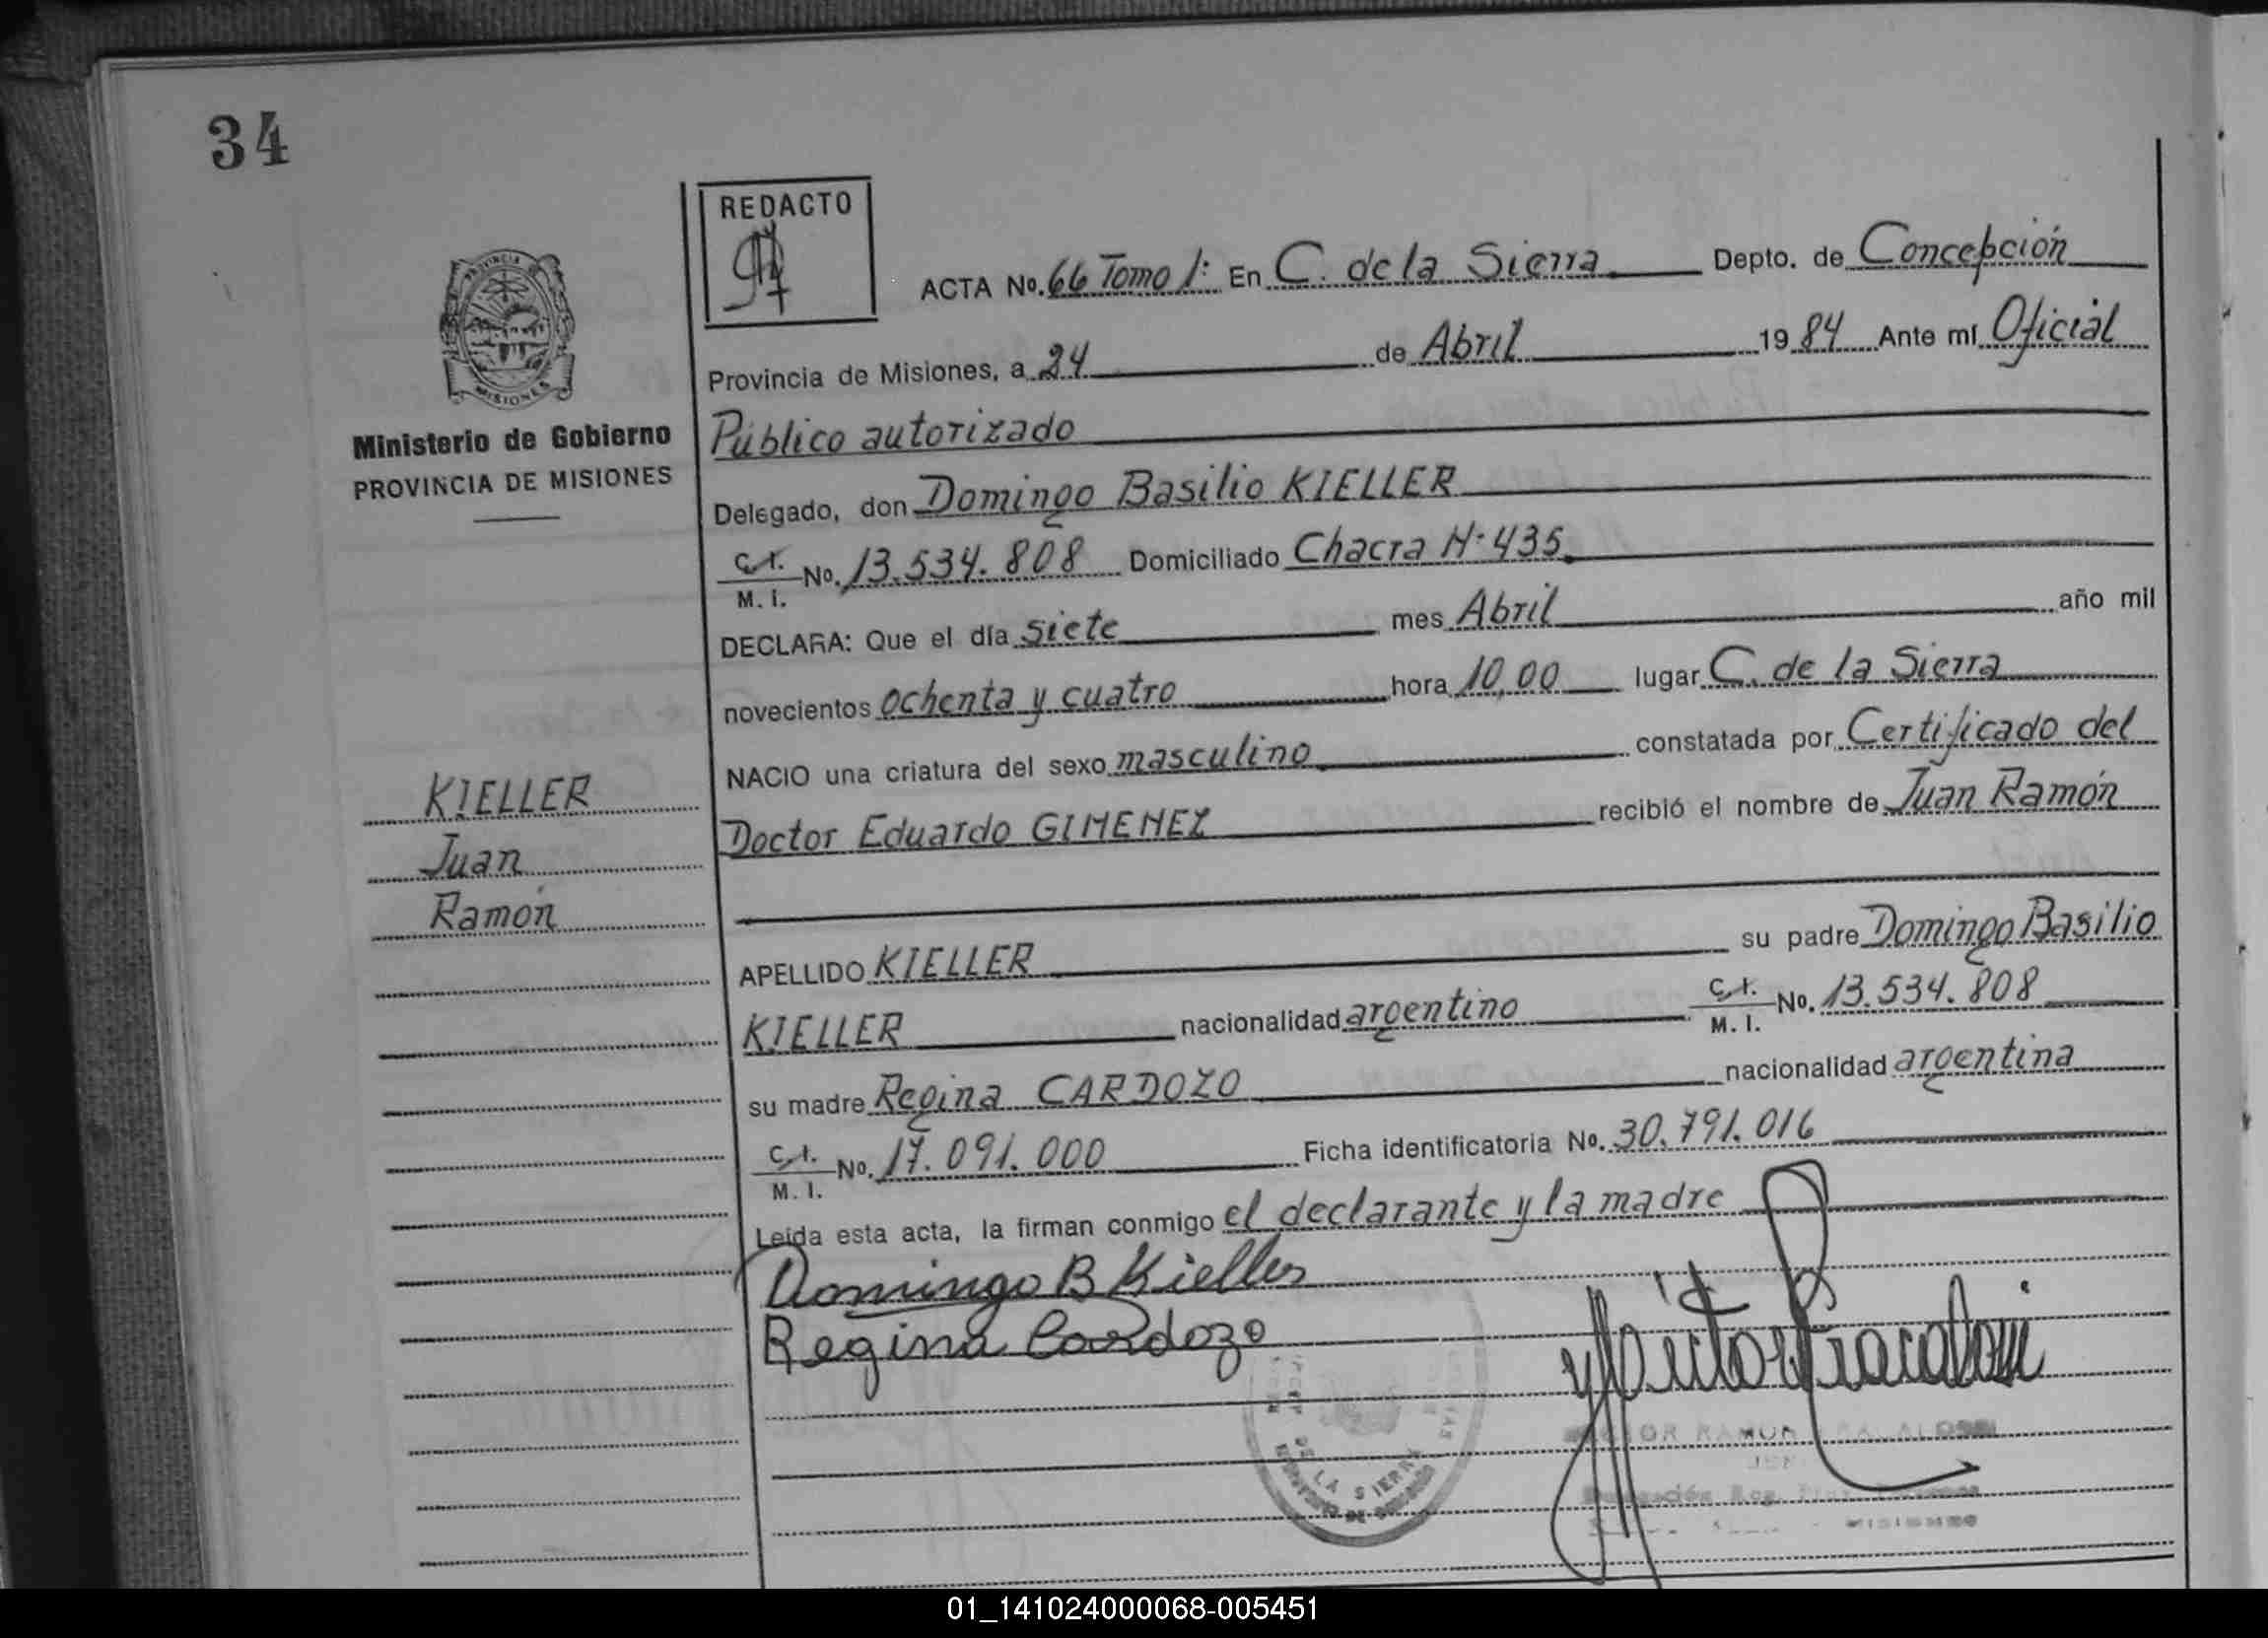 34
REDACTO
ACTA No. 66 Tomo 1: En C. de la Sierra Depto. de Concepción
Provincia de Misiones, a 24 de Abril 19 84 Ante mí Oficial
Público autorizado
Delegado, don Domingo Basilio KIELLER
C. I. M. I. No. 13.534.808 Domiciliado Chacra N: 435.
DECLARA: Que el día siete mes Abril año mil
novecientos ochenta y cuatro hora 10,00 lugar C. de la Sierra
NACIO una criatura del sexo masculino constatada por Certificado del
Doctor Eduardo GIMENEZ recibió el nombre de Juan Ramón
APELLIDO KIELLER su padre Domingo Basilio
KIELLER nacionalidad argentino C. I. M. I. No. 13.534.808
su madre Regina CARDOZO nacionalidad argentina
C. I. M. I. No. 17.091.000 Ficha identificatoria No. 30.791.016
Leída esta acta, la firman conmigo el declarante y la madre
Domingo B Kieller
Regina Cardozo
DE LA SIERRA
PROVINCIA DE
MISIONES
Ministerio de Gobierno
PROVINCIA DE MISIONES
KIELLER
Juan
Ramón
01_141024000068-005451